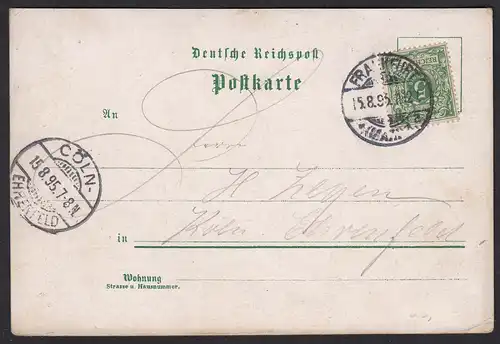 Deutsche Reichspost
Postkarte
FRANKFURT
15.8.95
(MAIN)
An
Herrn
H
CÖLN-
15.8.95.7-8N.
EHRENFELD
in
Köln Ehrenfeld
Wohnung
Strasse u. Hausnummer.